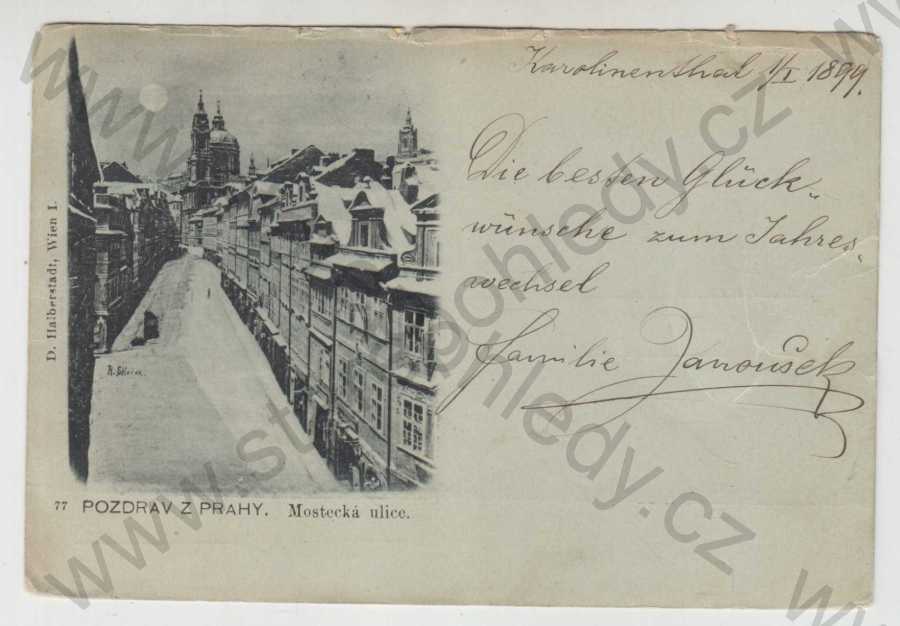 Karolinenthal 1/I 1899.
Die besten Glück„
wünsche zum Jahres„
wechsel
Familie Janoušek
D. Halberstadt, Wien I.
77 POZDRAV Z PRAHY. Mostecká ulice.
www.starepohledy.cz